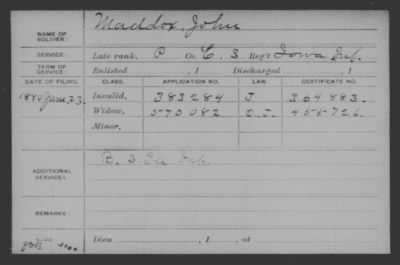 NAME OF SOLDIER: Maddox, John
SERVICE: Late rank, P Co. C, 3 Reg't Iowa Inf.
TERM OF SERVICE: Enlisted , 1 Discharged , 1
DATE OF FILING. CLASS. APPLICATION NO. LAW. CERTIFICATE NO.
1880 June 23 Invalid, 383284 J 364883.
Widow, 570082 O.J. 455726.
Minor,
ADDITIONAL SERVICES: B. 3. Inf.
REMARKS:
Died , 1 , at